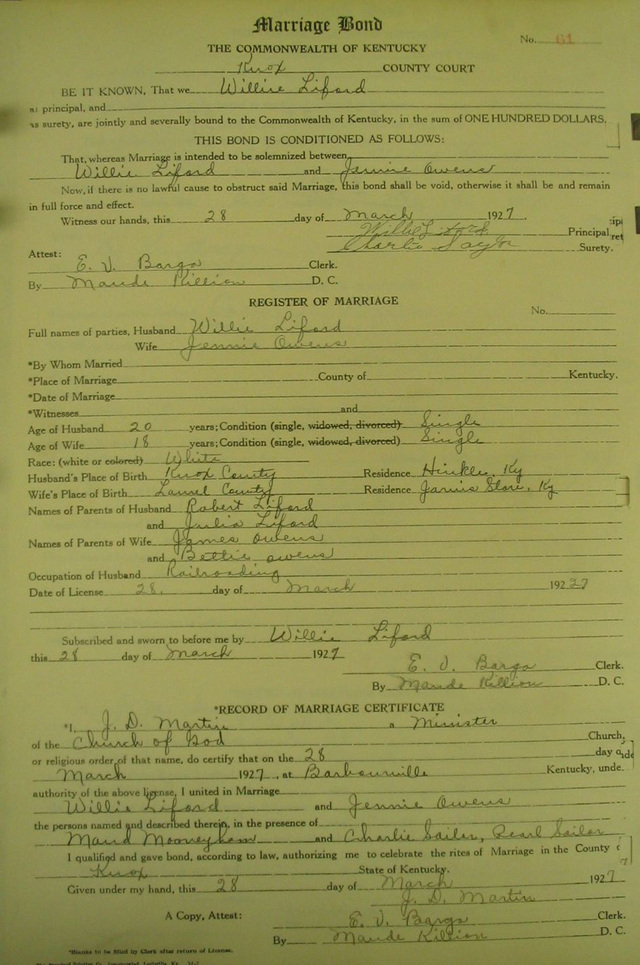 Marriage Bond
No. 61
THE COMMONWEALTH OF KENTUCKY
Knox COUNTY COURT
BE IT KNOWN, That we Willie Liford
as principal, and
as surety, are jointly and severally bound to the Commonwealth of Kentucky, in the sum of ONE HUNDRED DOLLARS,
THIS BOND IS CONDITIONED AS FOLLOWS:
That, whereas Marriage is intended to be solemnized between
Willie Liford and Jennie Owens
Now, if there is no lawful cause to obstruct said Marriage, this bond shall be void, otherwise it shall be and remain
in full force and effect.
Witness our hands, this 28 day of March 1927
Willie Liford Principal
Charlie Saylor Surety.
Attest:
E. V. Bargo Clerk.
By Maude Killion D. C.
REGISTER OF MARRIAGE
No.
Full names of parties, Husband Willie Liford
Wife Jennie Owens
*By Whom Married
*Place of Marriage County of Kentucky.
*Date of Marriage
*Witnesses and
Age of Husband 20 years; Condition (single, widowed, divorced) Single
Age of Wife 18 years; Condition (single, widowed, divorced) Single
Race: (white or colored) White
Husband's Place of Birth Knox County Residence Hinkle, Ky
Wife's Place of Birth Laurel County Residence Jarvis Store, Ky
Names of Parents of Husband Robert Liford
and Julia Liford
Names of Parents of Wife James Owens
and Bettie Owens
Occupation of Husband Railroading
Date of License 28. day of March 192 27
Subscribed and sworn to before me by Willie Liford
this 28 day of March 1927
E. V. Bargo Clerk.
By Maude Killion D. C.
*RECORD OF MARRIAGE CERTIFICATE
*I, J. D. Martin a Minister
of the Church of God Church,
or religious order of that name, do certify that on the 28 day
March 1927, at Barbourville Kentucky, unde.
authority of the above license, I united in Marriage
Willie Liford and Jennie Owens
the persons named and described therein, in the presence of
Maud Mooneyham and Charlie Sailer, Pearl Sailor
I qualified and gave bond, according to law, authorizing me to celebrate the rites of Marriage in the County
Knox State of Kentucky.
Given under my hand, this 28 day of March 1927
J. D. Martin
A Copy, Attest: E. V. Bargo Clerk.
By Maude Killion D. C.
*Blanks to be filled by Clerk after return of License.